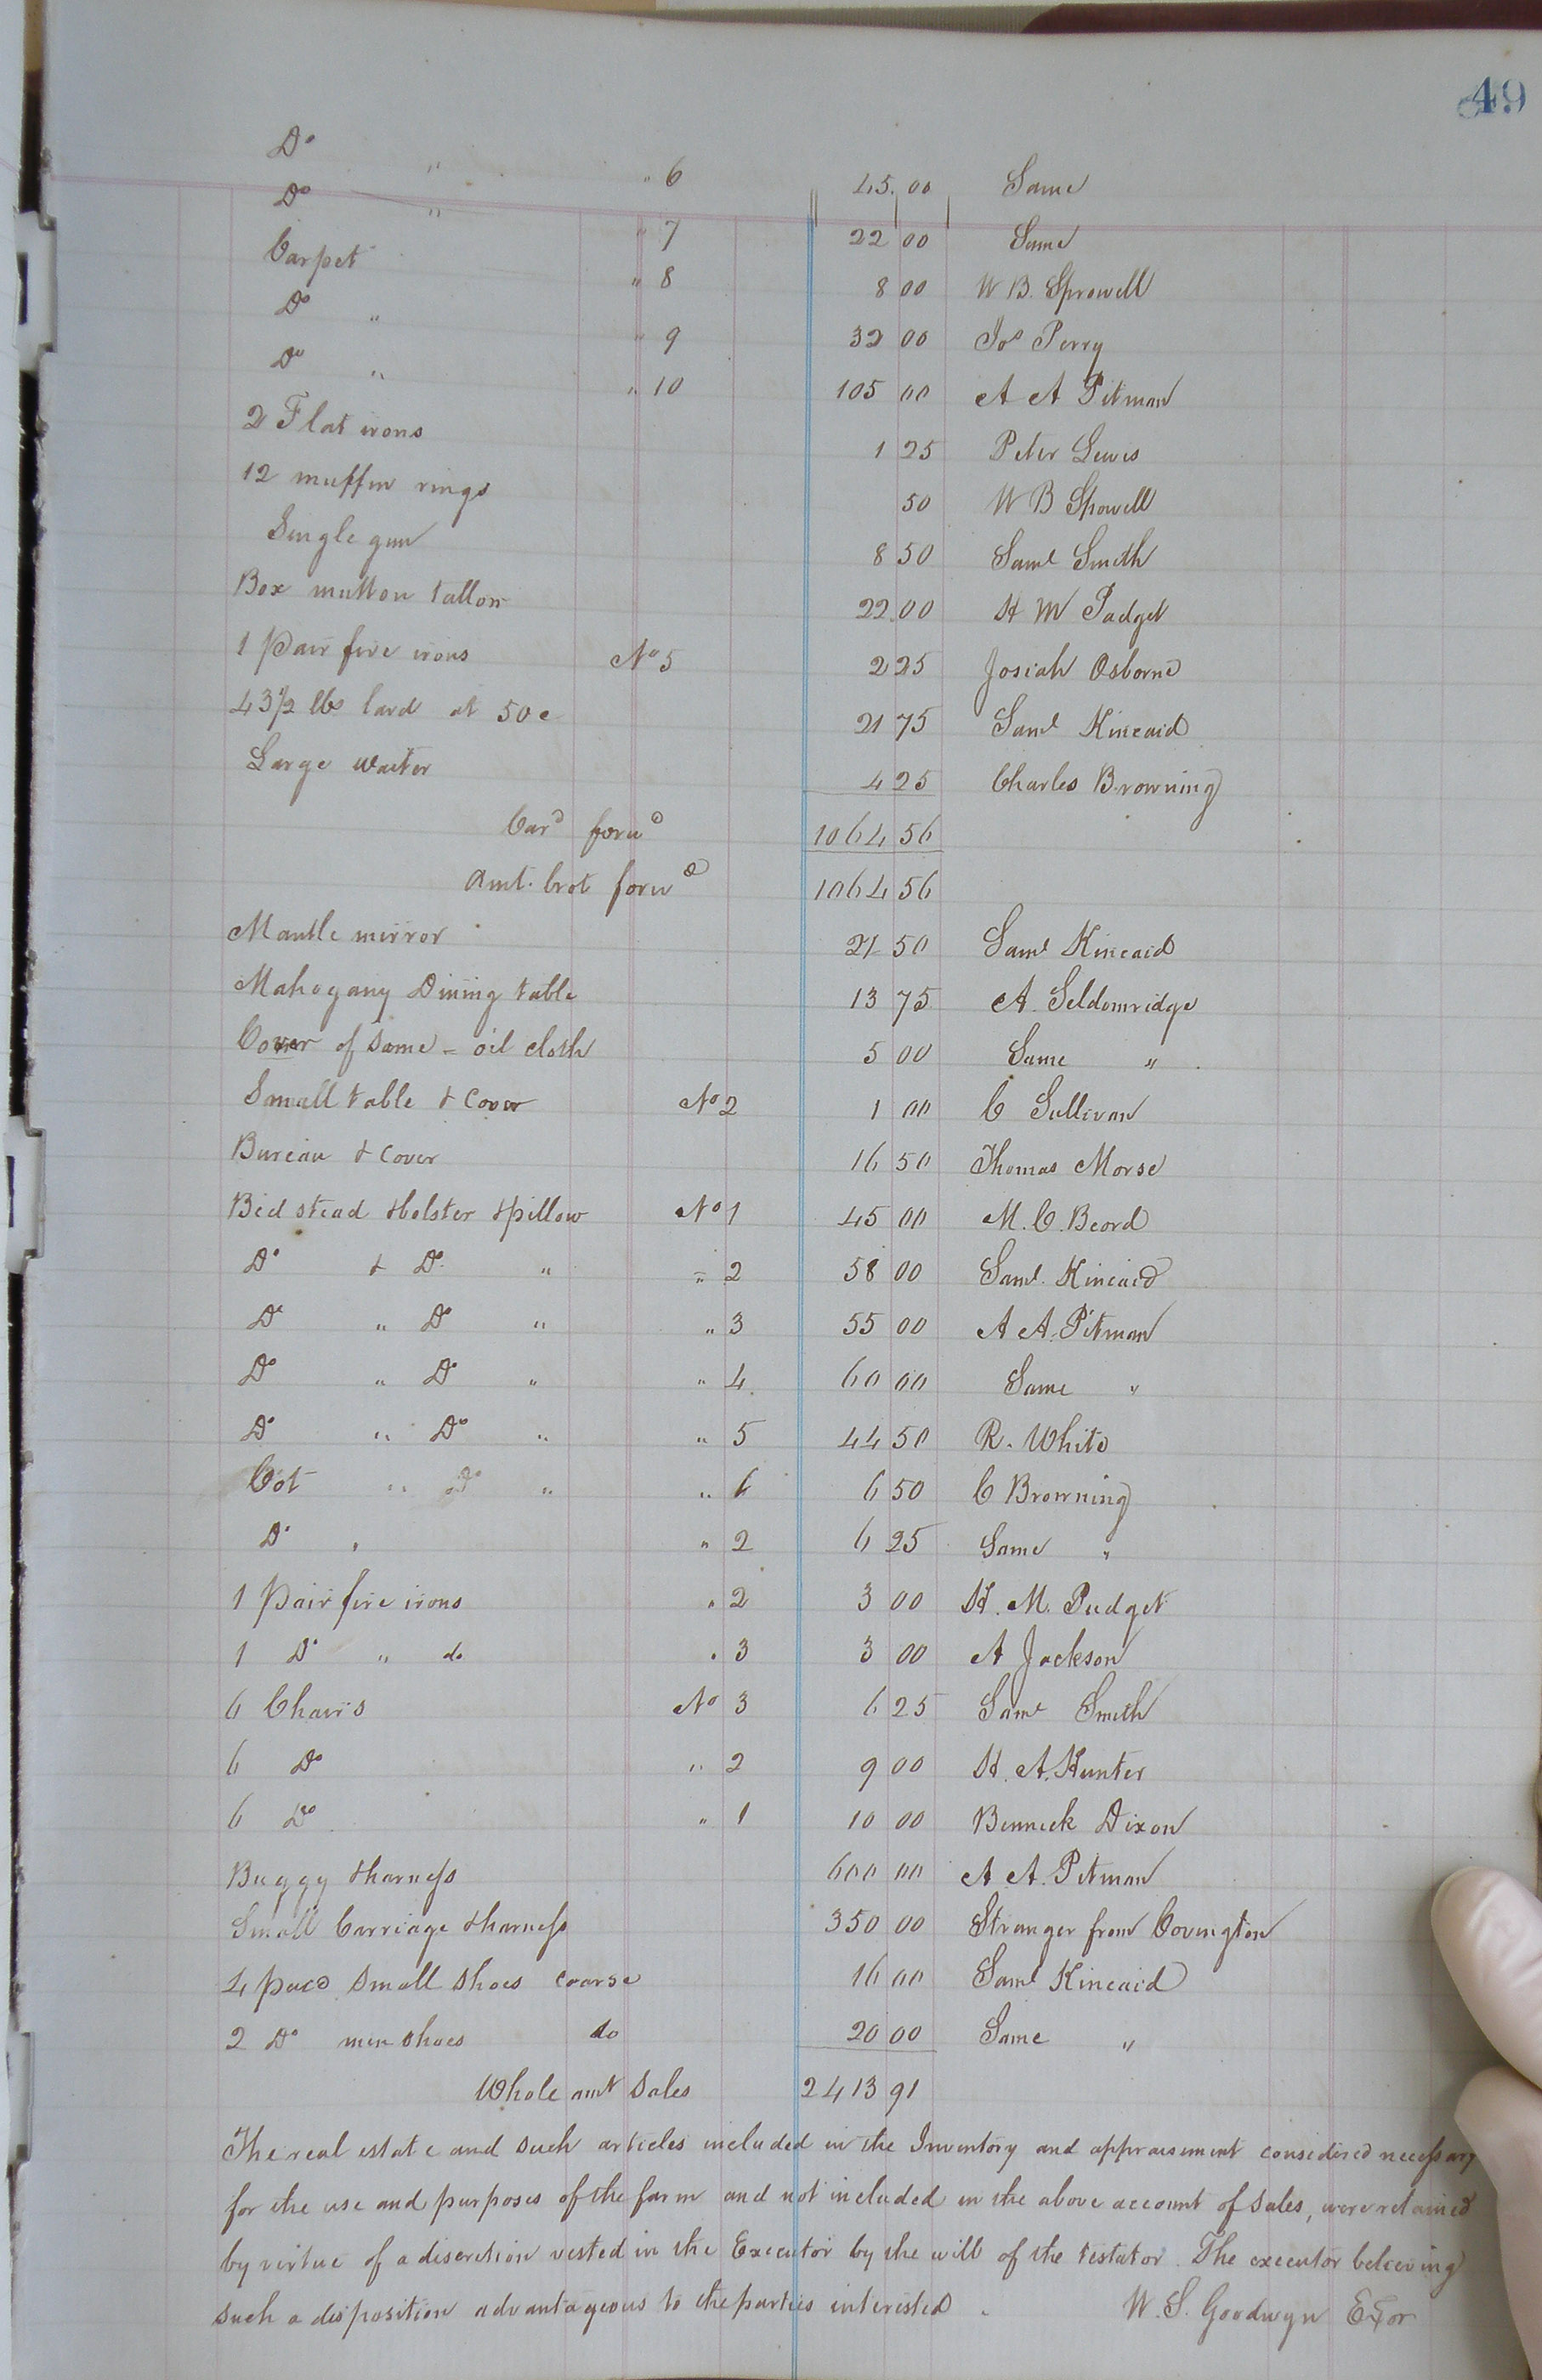 49
Do " " 6 45.00 Same
Do " " 7 22 00 Same
Carpet " 8 8 00 W B. Sprowell
Do " " 9 32 00 Jos Perry
Do " " 10 105 00 A A Pitman
2 Flat irons 1 25 Peter Lewis
12 muffin rings 50 W B Spowell
Single gun 8 50 Saml Smith
Box mutton tallow 22.00 H M Padget
1 Pair fire irons No 5 2 25 Josiah Osborne
43 1/2 lbs lard at 50 c 21 75 Saml Kincaid
Large waiter 4 25 Charles Browning
Card forwd 1064 56
Amt. brot forwd 1064 56
Mantle mirror 21 50 Saml Kincaid
Mahogany Dining table 13 75 A. Seldomridge
Cover of same = oil cloth 5 00 Same "
Small table & cover No 2 1 00 C Sullivan
Bureau & cover 16 50 Thomas Morse
Bed stead &bolster &pillow No 1 45 00 M. C. Beard
Do & Do " " 2 58 00 Saml. Kincaid
Do " Do " " 3 55 00 A A. Pitman
Do " Do " " 4 60 00 Same "
Do " Do " " 5 44 50 R. White
Cot " do " " 6 6 50 C Browning
Do " " 2 6 25 Same "
1 Pair fire irons " 2 3 00 H. M. Padget
1 Do " do " 3 3 00 A Jackson
6 Chairs No 3 6 25 Saml Smith
6 Do " 2 9 00 H. A. Hunter
6 Do " 1 10 00 Bennick Dixon
Buggy &harness 600 00 A A. Pitman
Small Carriage &harness 350 00 Stranger from Covington
4 small shoes coarse 16 00 Saml Kincaid
2 Do men shoes do 20 00 Same "
Whole amt sales 2413 91
The real estate and such articles included in the Inventory and appraisement considered necessary
for the use and purposes of the farm and not included in the above account of sales, were retained
by virtue of a discretion vested in the Executor by the will of the testator. The executor believing
such a disposition advantageous to the parties interested. W. S. Goodwyn Exor